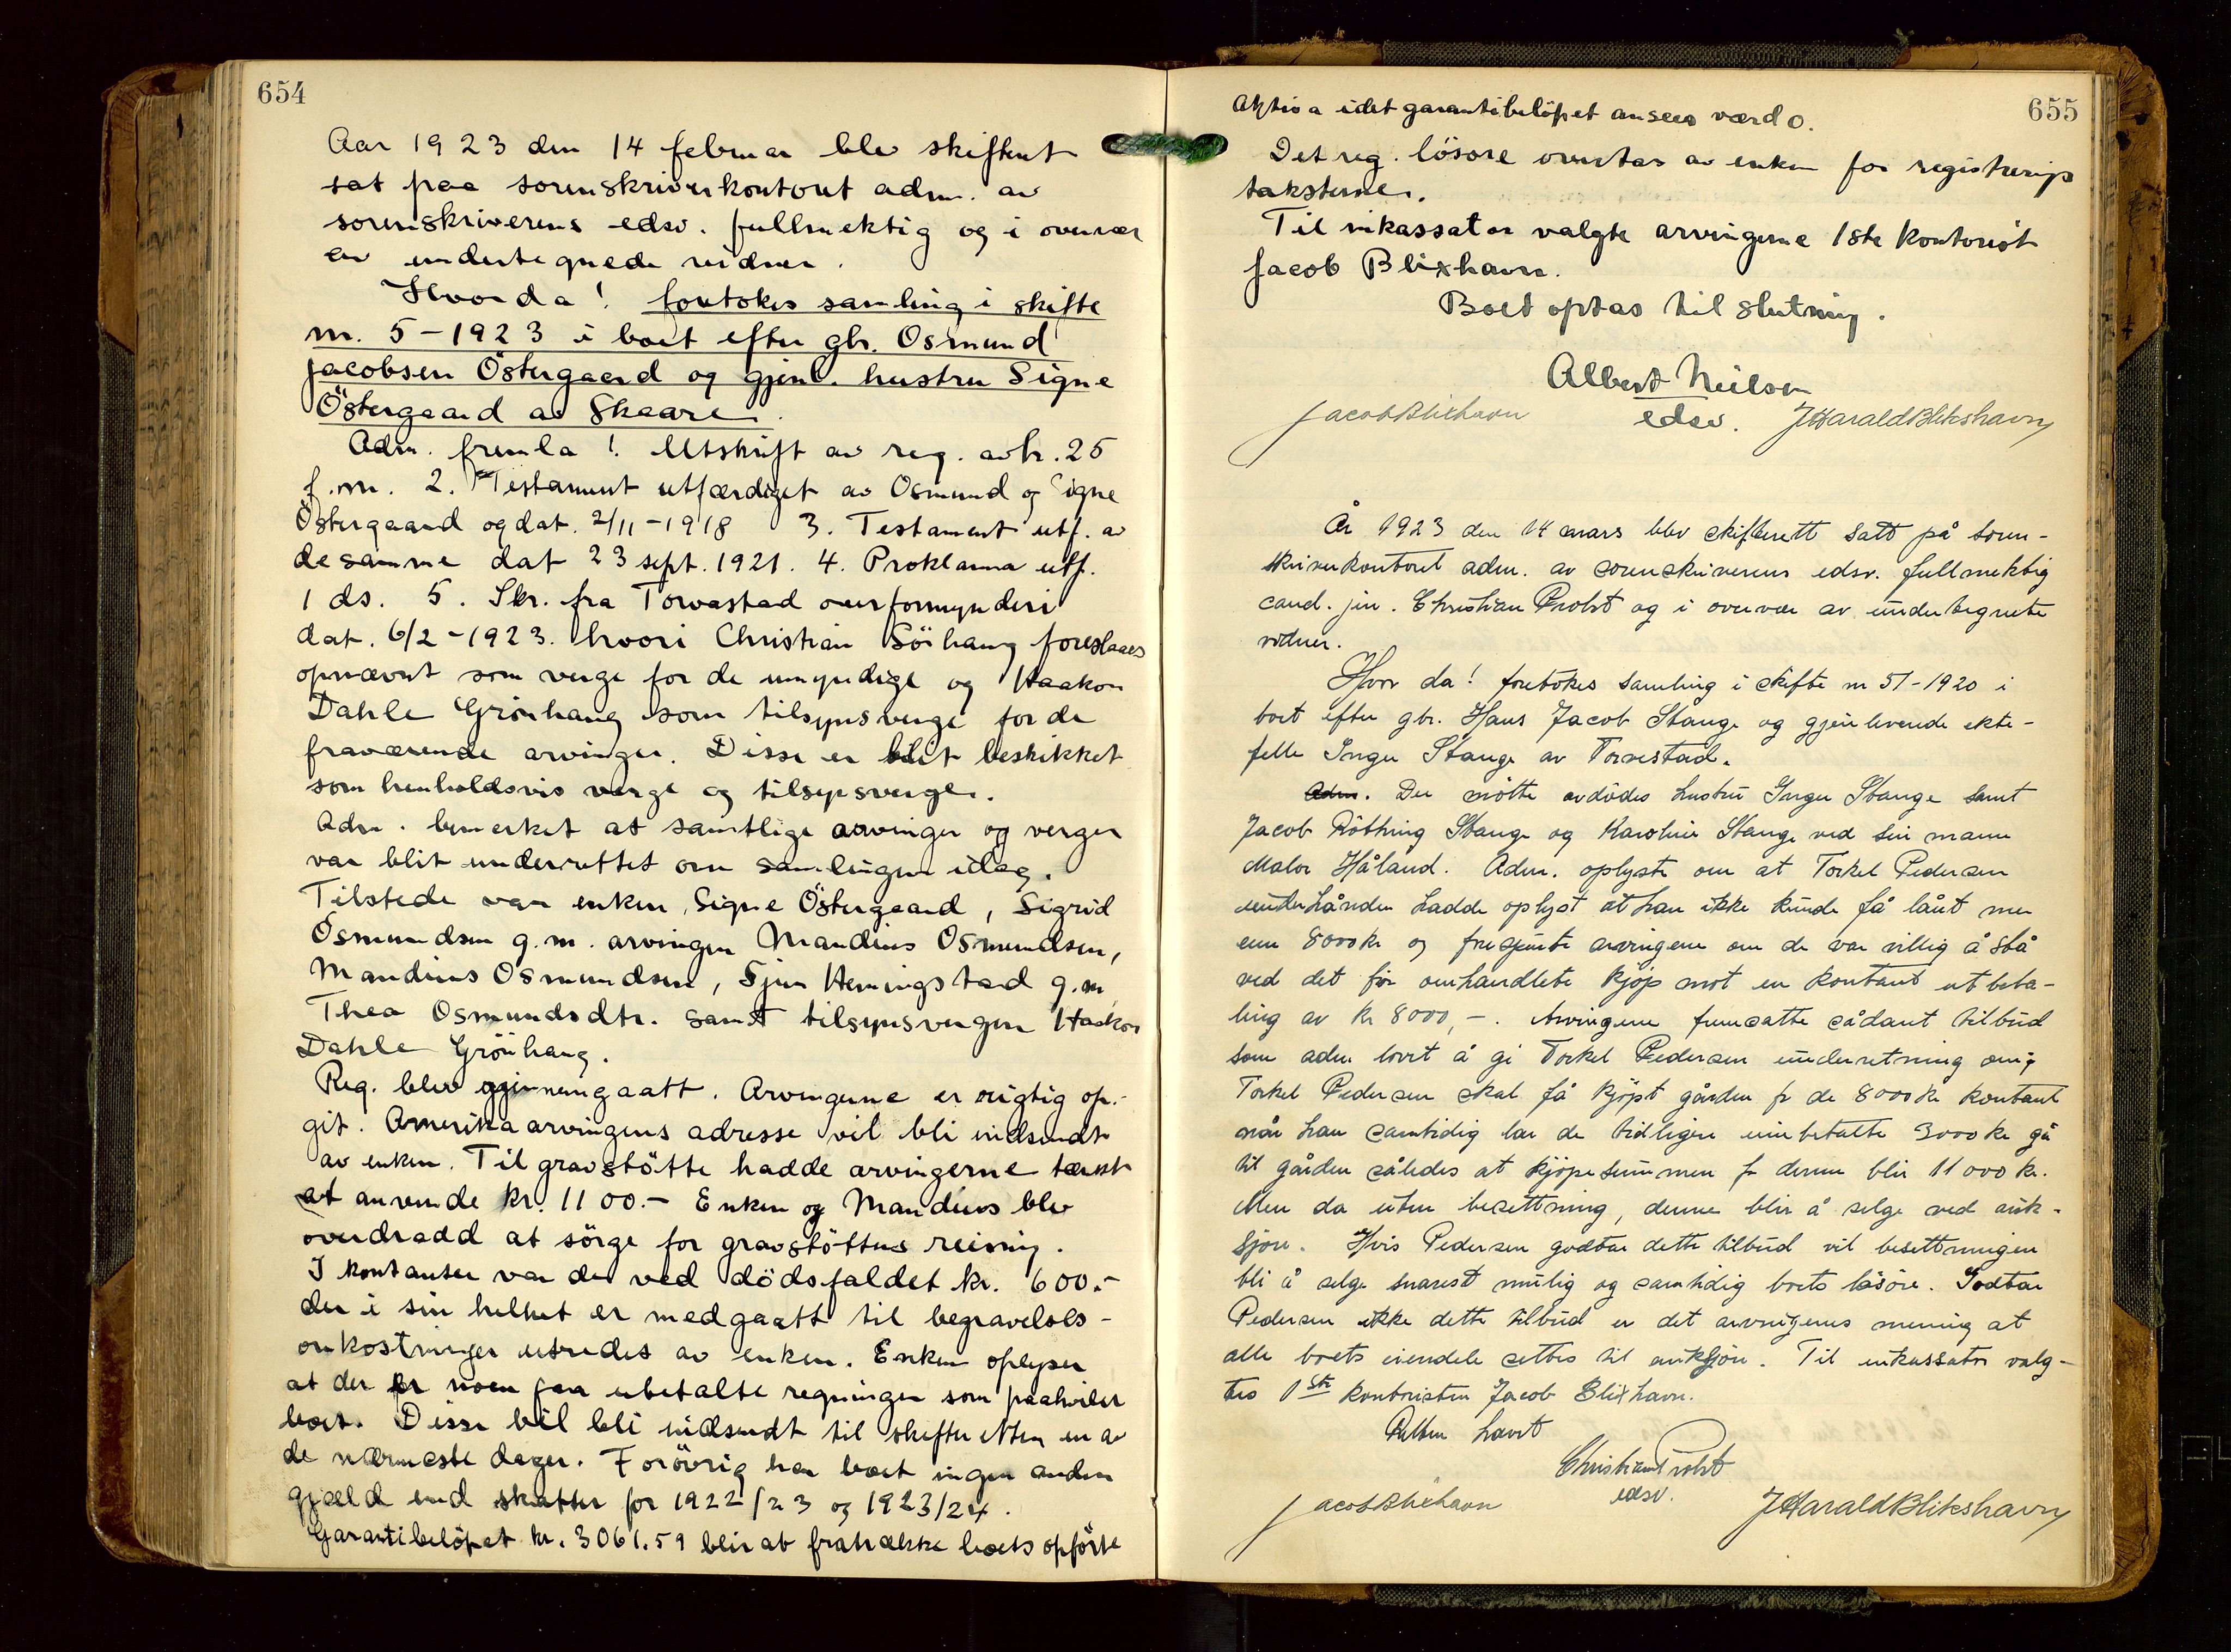 654
Aar 1923 den 14 februar blev skifteret
sat paa sorenskriverkontoret adm. av
sorenskriverens edsv. fullmektig og i overvær
av undertegnede vidner.
Hvorda! foretokes samling i skifte
nr. 5-1923 i boet efter gbr. Osmund
Jacobsen Östergaard og gjenl. hustru Signe
Östergaard av Skaare.
Adm. fremla 1. Utskrift av reg. avh. 25
f.m. 2. Testament utfærdiget av Osmund og Signe
Östergaard og dat. 2/11-1918 3. Testament utf. av
de samme dat 23 sept. 1921. 4. Proklama utf.
1 ds. 5. Skr. fra Torvastad overformynderi
dat. 6/2-1923. hvori Christian Sörhaug foreslaaes
opnævnt som verge for de umyndige og Haakon
Dahle Grönhaug som tilsynsverge for de
fraværende arvinger. Disse er blit beskikket
som henholdsvis verge og tilsynsverge.
Adm. bemerket at samtlige arvinger og verger
var blit underrettet om samlingen idag.
Tilstede var enken, Signe Östergaard, Sigrid
Osmundsen g.m. arvingen Mandius Osmundsen,
Mandius Osmundsen, Sjur Hemingstad g.m.
Thea Osmundsdtr. samt tilsynsvergen Haakon
Dahle Grönhaug.
Reg. blev gjennemgaatt. Arvingerne er rigtig op-
git. Amerikaarvingens adresse vil bli indsendt
av enken. Til gravstötte hadde arvingerne tænkt
at anvende kr. 1100.- Enken og Mandius blev
overdradd at sörge for gravstöttens reisnig.
I kontanter var der ved dödsfaldet kr. 600.-
der i sin helhet er medgaatt til begravelses-
omkostninger utredet av enken. Enken oplyser
at der er noen faa ubetalte regninger som paahviler
boet. Disse vil bli indsendt til skifteretten en av
de nærmeste dager. Forövrig har boet ingen anden
gjæld end skatter for 1922/23 og 1923/24.
Garantibelöpet kr. 3061.59 blir at fratrække boets opförte
655
Aktiva idet garantibelöpet ansees værd 0.
Det reg. lösöre overtas av enken for registrerings
taksterne.
Til inkassator valgte arvingerne 1ste kontorist
Jacob Blixhavn.
Boet optas til slutning.
Albert Neilson
edsv.
Jacob Blixhavn
J Harald Blikshavn
År 1923 den 14 mars blev skifterett satt på soren-
skriverkontoret adm. av sorenskriverens edsv. fullmektig
cand. jur. Christian Probst og i overvær av undertegnete
vidner.
Hvor da! foretokes samling i skifte nr 51-1920 i
boet efter gbr. Hans Jacob Stange og gjenlevende ekte-
felle Inger Stange av Torvestad.
Adm. Der mötte avdödes hustru Inger Stange samt
Jacob Röthing Stange og Karoline Stange ved sin mann
Malor Håland. Adm. oplyste om at Torkel Pedersen
underhånden hadde oplyst at han ikke kunde få lånt mer
enn 8000 kr og forespurte arvingene om de var villig å stå
ved det för omhandlete kjöp mot en kontant utbeta-
ling av kr 8000,-. Arvingene fremsatte sådant tilbud
som adm lovet å gi Torkel Pedersen underretning om;
Torkel Pedersen skal få kjöpt gården for de 8000 kr kontant
når han samtidig lar de tidligere innbetalte 3000 kr gå
til gården således at kjöpesummen for denne blir 11000 kr.
Men da uten besettning, denne blir å selge ved auk-
sjon. Hvis Pedersen godtar dette tilbud vil besettningen
bli å selge snarest mulig og samtidig boets lösöre. Godtar
Pedersen ikke dette tilbud er det arvingenes mening at
alle boets eiendele settes til auksjon. Til inkassator valg-
tes 1ste kontoristen Jacob Blixhavn.
Retten hevet
Christian Probst
edsv.
Jacob Blixhavn
J Harald Blikshavn